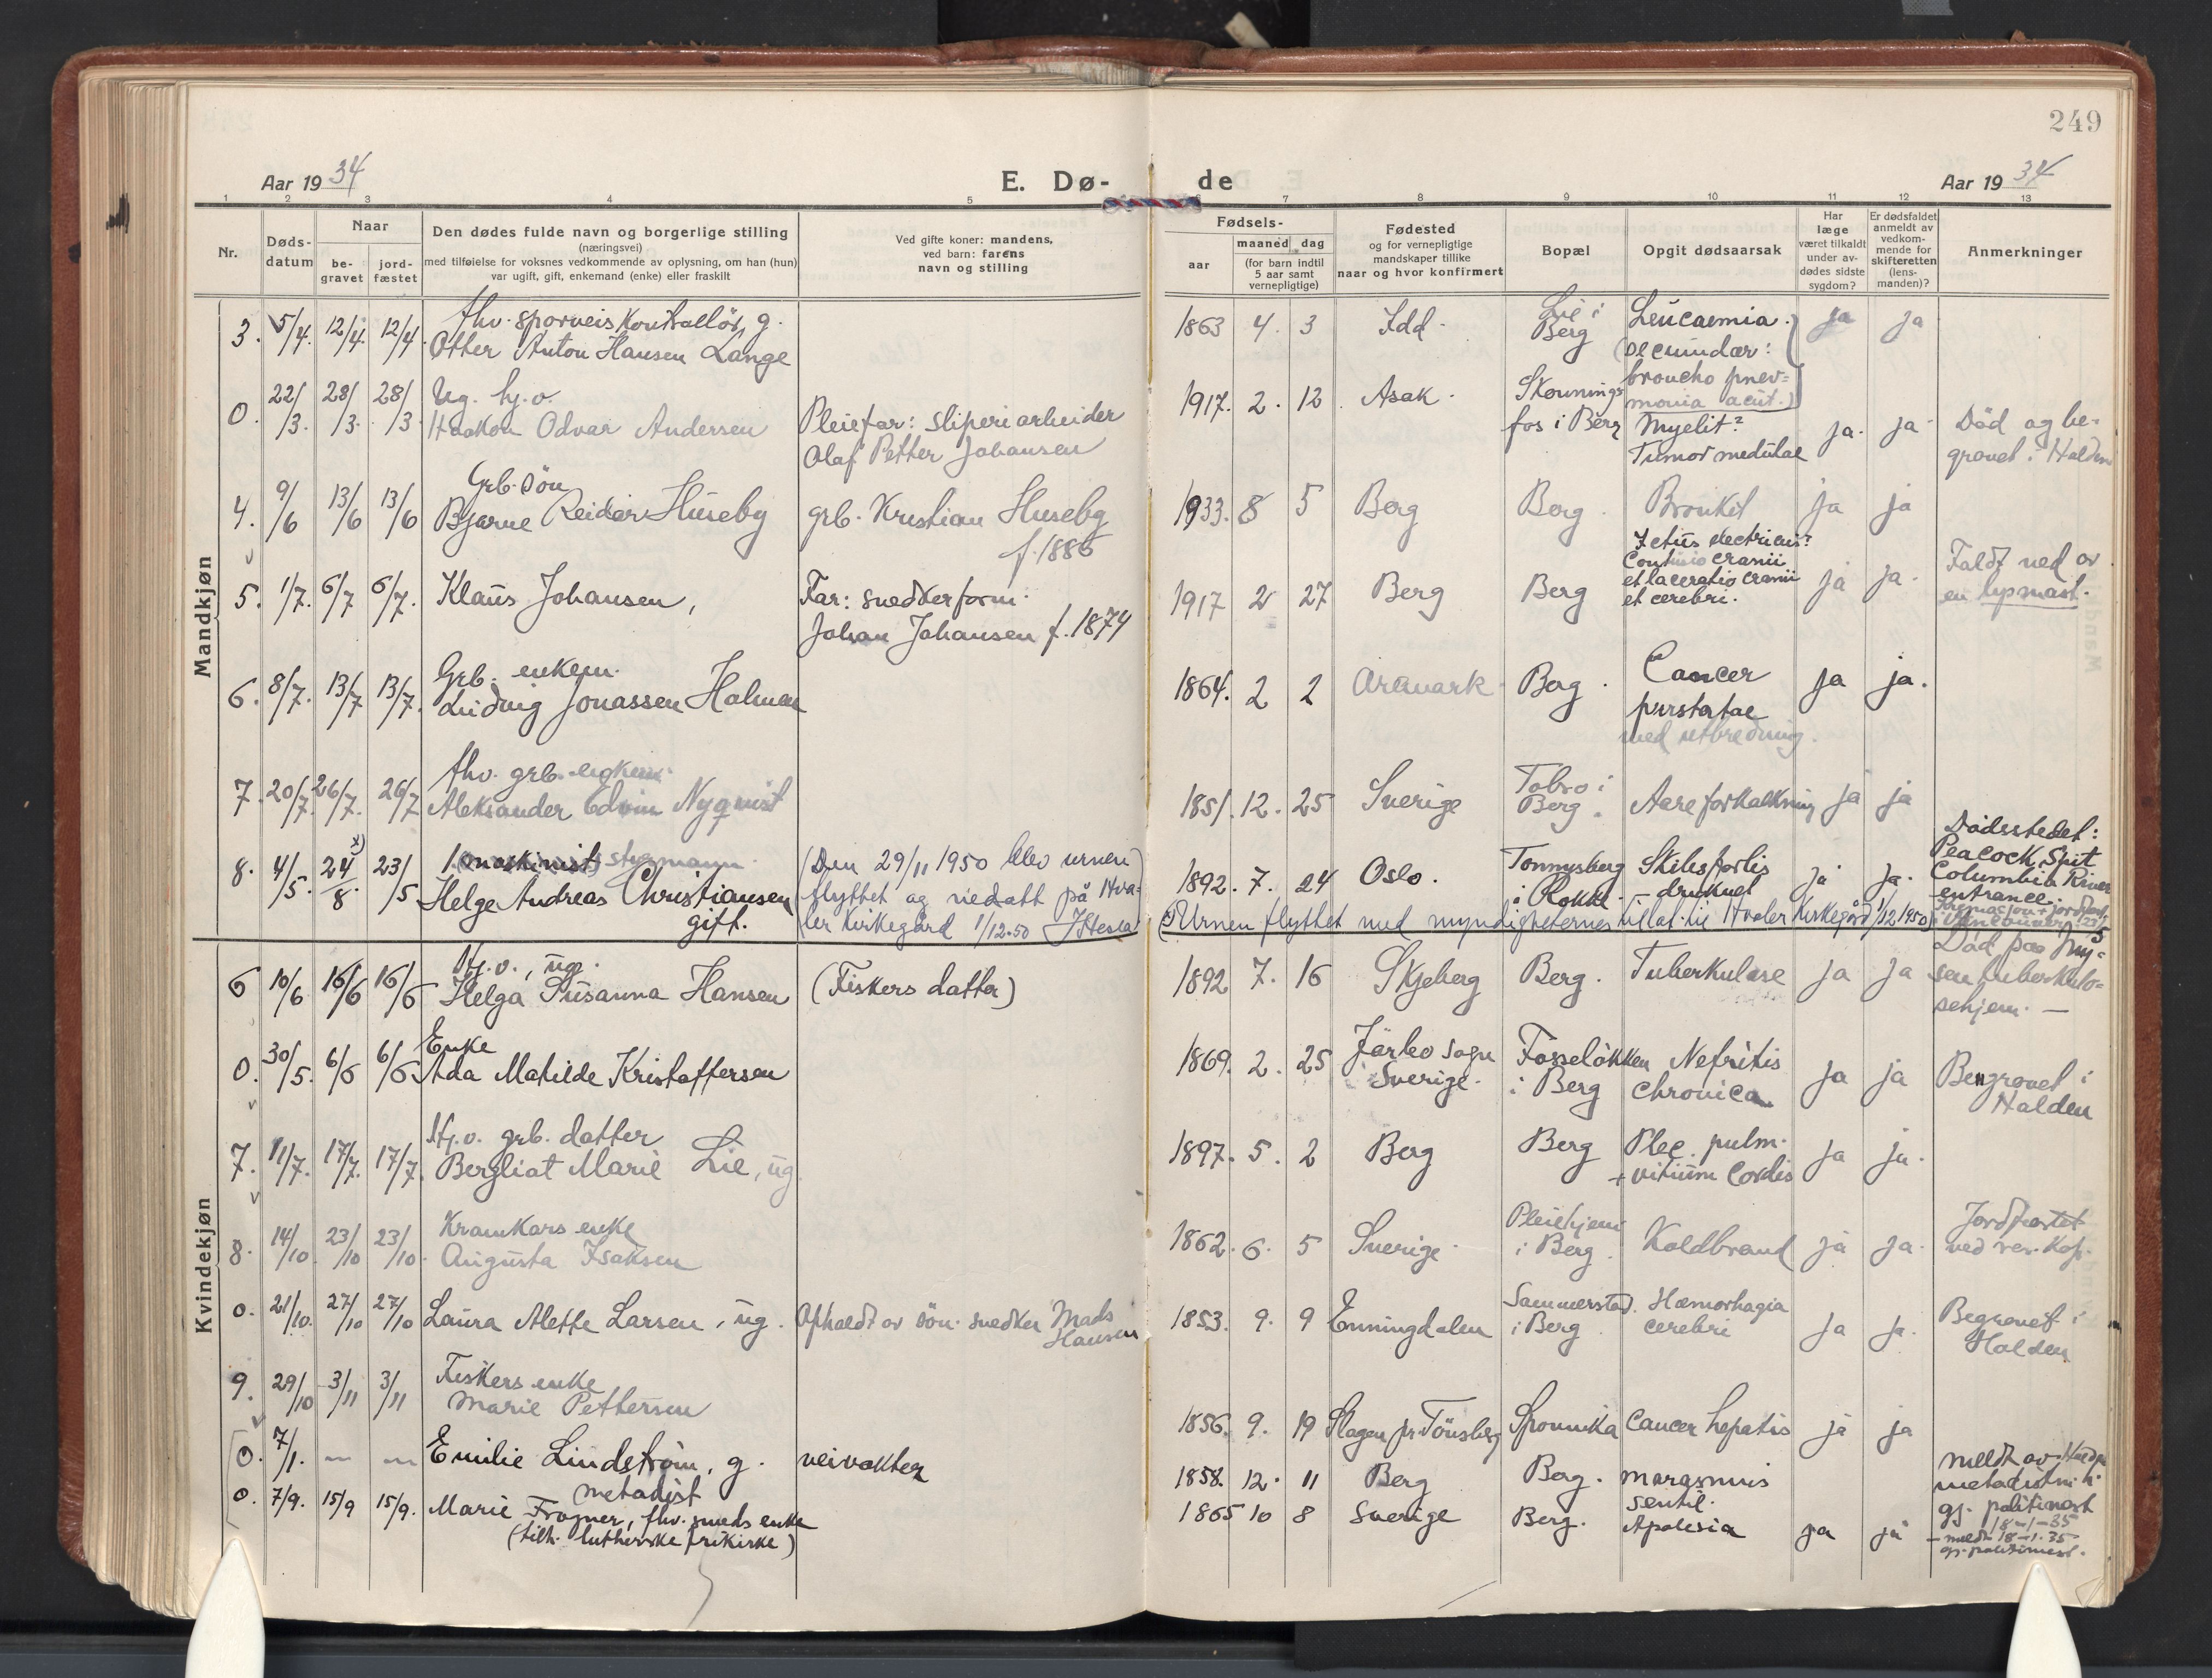 249
Aar 1934
E. Dø-
de
Aar 1934
1 2 3 4 5 6 7 8 9 10 11 12 13
Nr.
Døds-
datum
Naar
be-
gravet
jord-
fæstet
Den dødes fulde navn og borgerlige stilling
(næringsvei)
med tilføielse for voksnes vedkommende av oplysning, om han (hun)
var ugift, gift, enkemand (enke) eller fraskilt
Ved gifte koner: mandens,
ved barn: farens
navn og stilling
Fødsels-
aar
maaned dag
(for barn indtil
5 aar samt
vernepligtige)
Fødested
og for vernepligtige
mandskaper tillike
naar og hvor konfirmert
Bopæl
Opgit dødsaarsak
Har
læge
været tilkaldt
under av-
dødes sidste
sygdom?
Er dødsfaldet
anmeldt av
vedkom-
mende for
skifteretten
(lens-
manden)?
Anmerkninger
Mandkjøn
3. 5/4. 12/4. 12/4.
fhv. sporveiskontrollör, g.
Otter Anton Hansen Lange
1863 4. 3 Idd.
Lie i
Berg
Leucaemia.
(secundær:
broncho pnev-
monia acut.)
ja ja
0. 22/3. 28/3. 28/3
Ug. hj.v.
Haakon Odvar Andersen
Pleiefar: sliperiarbeider
Olaf Petter Johansen
1917. 2. 12. Asak.
Skonnings-
fos i Berg
Myelit?
Tumor medulae
ja. ja
Död og be-
gravet i Halden
4. 9/6 13/6 13/6
Grb. sön
Bjarne Reidar Huseby
grb. Kristian Huseby
f. 1886
1933. 8 5 Berg Berg. Bronkit ja ja
5. 1/7. 6/7 6/7.
Klaus Johansen,
Far: snedkerform.
Johan Johansen f. 1874
1917 2 27 Berg Berg
Ictus electricus?
Contusio cranii
et laceratio cranii
et cerebri.
ja ja.
Faldt ned av
en lysmast.
6. 8/7. 13/7 13/7.
Grb. enkem.
Ludvig Jonassen Holmen
1864. 2 2 Aremark. Berg.
Cancer
prostatae
med utbredning.
ja ja.
7. 20/7. 26/7. 26/7
fhv. grb. enkem.
Aleksander Edvin Nyqvist
1851. 12. 25 Sverige
Tobro i
Berg.
Aareforkalkning ja ja
8. 4/5. x) 24/8. 23/5
1. (maskinist) styrmann.
Helge Andreas Christiansen
gift.
(Den 29/11 1950 blev urnen
flyttet og nedsatt på Hva-
ler kirkegård 1/12.50
1892. 7. 24 Oslo.
Tonnysberg
i Rokke.
Skibsforlis
- druknet
ja ja.
Dödsstedet:
Peacock Spit
Columbia River
entrance.
x) Urnen flyttet med myndighetenes tillat. til Hvaler kirkegård 1/12 1950)
Kvindekjøn
6 10/6 16/6 16/6
Hj.v., ug.
Helga Susanna Hansen
(Fiskers datter)
1892 7. 16 Skjeberg Berg. Tuberkulose ja ja
Död paa My-
sen tuberkulo-
sehjem. —
0. 30/5. 6/6 6/6
Enke
Ada Matilde Kristoffersen
1869. 2. 25
Järbo sogn
Sverige.
Fosselökken
i Berg
Nefritis
chronica
ja ja
Begravet i
Halden
7. 11/7. 17/7. 17/7.
Hj.v. grb. datter
Bergliot Marie Lie, ug
1897. 5. 2 Berg Berg
Plec. pulm.
+ vitium Cordis
ja ja.
8. 14/10. 23/10 23/10.
Kramkars enke
Augusta Isaksen
1862. 6. 5 Sverige.
Pleiehjem
i Berg.
Koldbrand ja ja.
Jordfæstet
ved res. kap.
0. 21/10. 27/10 27/10
Laura Alette Larsen, ug.
Opholdt av sön. snedker Mads
Hansen
1853. 9. 9 Enningdalen
Sammerstad.
i Berg.
Hæmorhagia
cerebri
ja ja.
Begravet i
Halden
9. 29/10 3/11 3/11
Fiskers enke
Marie Pettersen
1856. 9. 19 Slagen pr. Tönsberg Sponvika Cancer hepatis ja ja
0. 7/1. — —
Emilie Lindström, g.
metodist
veivokter
1858. 12. 11 Berg Berg.
marasmus
senil.
meldt av
gj. politimest
18-1-35
0. 7/9. 15/9 15/9.
Marie Frogner, fhv. smeds enke
(tilh. lutherske frikirke)
1865 10 8 Sverige Berg. Apolesia ja ja
- meldt 18-1-35
gj. politimest.